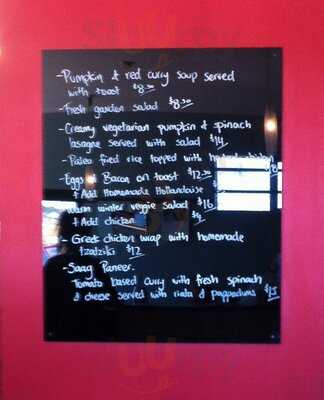 - Pumpkin & red curry soup served
with toast $8.50
- Fresh garden salad $8.50
- Creamy vegetarian pumpkin & spinach
lasagne served with salad $14
- Paleo fried rice topped with
- Eggs & Bacon on toast $12.50
+ Add Homemade Hollandaise $
- Warm winter veggie salad $16
+ Add chicken
- Greek chicken wrap with homemade
tzatziki $12
- Saag Paneer -
Tomato based curry with fresh spinach
& cheese served with riata & pappodums $15